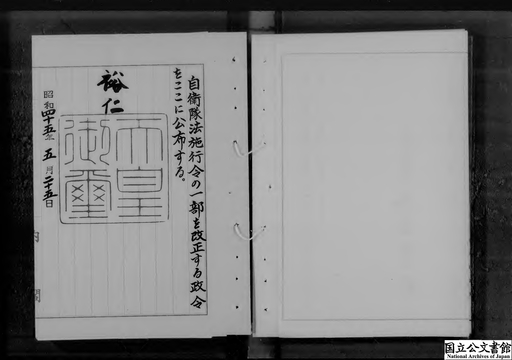 自衛隊法施行令の一部を改正する政令
をここに公布する。
裕仁
天皇
御璽
昭和四十五年五月二十五日
内
閣
国立公文書館
National Archives of Japan